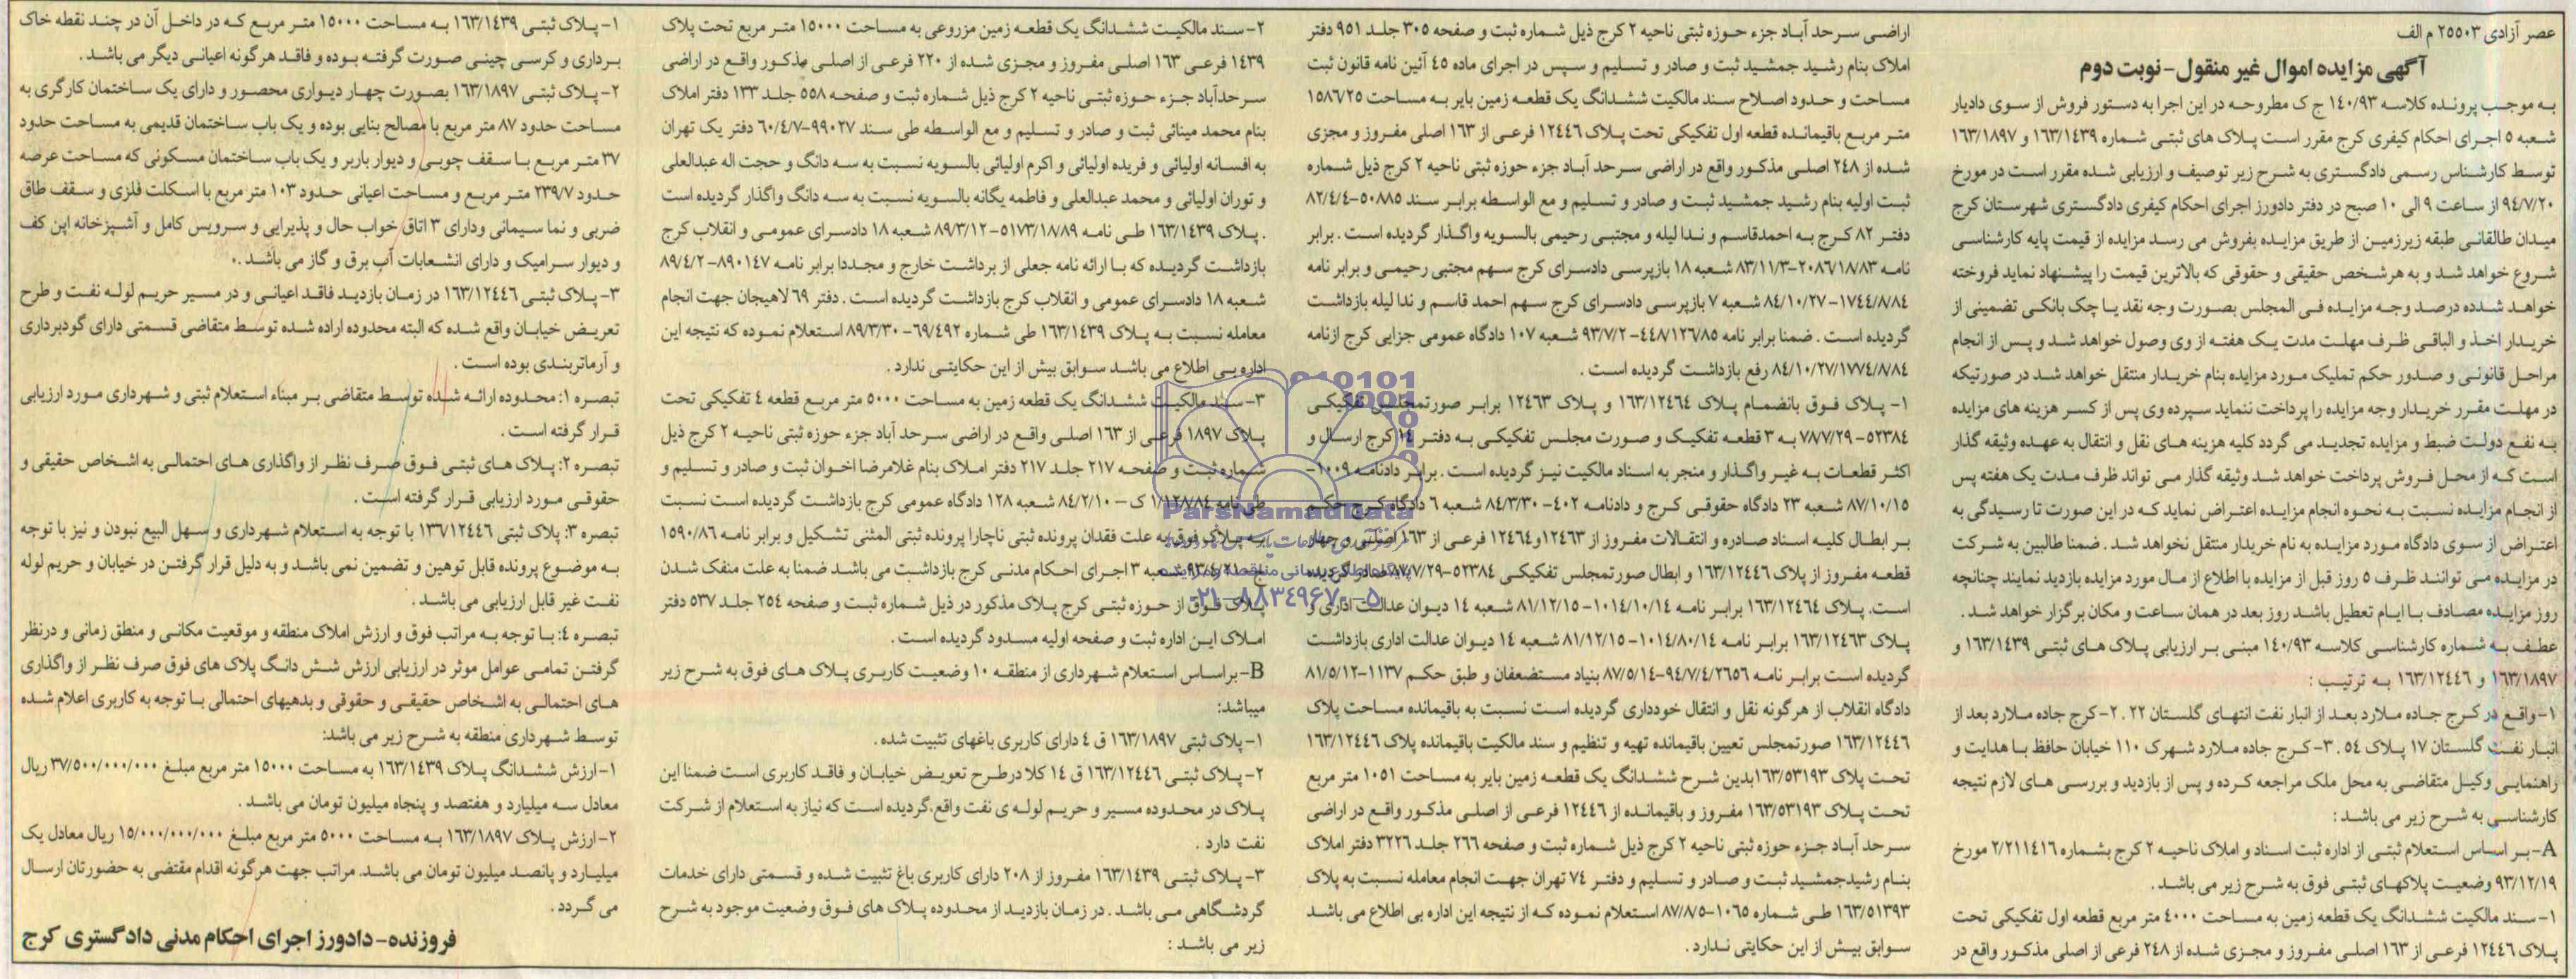 عصر آزادی ۲۵۵۰۳ م الف
آگهی مزایده اموال غیر منقول- نوبت دوم
به موجب پرونده کلاسه ۱۴۰/۹۳ ج ک مطروحه در این اجرا به دستور فروش از سوی دادیار
شعبه ۵ اجرای احکام کیفری کرج مقرر است پلاک های ثبتی شماره ۱۶۳/۱۴۳۹ و ۱۶۳/۱۸۹۷
توسط کارشناس رسمی دادگستری به شرح زیر توصیف و ارزیابی شده مقرر است در مورخ
۹۴/۷/۲۰ از ساعت ۹ الی ۱۰ صبح در دفتر دادورز اجرای احکام کیفری دادگستری شهرستان کرج
میدان طالقانی طبقه زیرزمین از طریق مزایده بفروش می رسد مزایده از قیمت پایه کارشناسی
شروع خواهد شد و به هر شخص حقیقی و حقوقی که بالاترین قیمت را پیشنهاد نماید فروخته
خواهد شد ده درصد وجه مزایده فی المجلس بصورت وجه نقد یا چک بانکی تضمینی از
خریدار اخذ و الباقی ظرف مهلت مدت یک هفته از وی وصول خواهد شد و پس از انجام
مراحل قانونی و صدور حکم تملیک مورد مزایده بنام خریدار منتقل خواهد شد در صورتیکه
در مهلت مقرر خریدار وجه مزایده را پرداخت ننماید سپرده وی پس از کسر هزینه های مزایده
به نفع دولت ضبط و مزایده تجدید می گردد کلیه هزینه های نقل و انتقال به عهده وثیقه گذار
است که از محل فروش پرداخت خواهد شد وثیقه گذار می تواند ظرف مدت یک هفته پس
از انجام مزایده نسبت به نحوه انجام مزایده اعتراض نماید که در این صورت تا رسیدگی به
اعتراض از سوی دادگاه مورد مزایده به نام خریدار منتقل نخواهد شد . ضمنا طالبین به شرکت
در مزایده می توانند ظرف ۵ روز قبل از مزایده با اطلاع از مال مورد مزایده بازدید نمایند چنانچه
روز مزایده مصادف با ایام تعطیل باشد روز بعد در همان ساعت و مکان برگزار خواهد شد .
عطف به شماره کارشناسی کلاسه ۱۴۰/۹۳ مبنی بر ارزیابی پلاک های ثبتی ۱۶۳/۱۴۳۹ و
۱۶۳/۱۸۹۷ و ۱۶۳/۱۲۴۴۶ به ترتیب :
۱- واقع در کرج جاده ملارد بعد از انبار نفت انتهای گلستان ۲۲ . ۲- کرج جاده ملارد بعد از
انبار نفت گلستان ۱۷ پلاک ۵۴ . ۳- کرج جاده ملارد شهرک ۱۱۰ خیابان حافظ با هدایت و
راهنمایی وکیل متقاضی به محل ملک مراجعه کرده و پس از بازدید و بررسی های لازم نتیجه
کارشناسی به شرح زیر می باشد :
A- بر اساس استعلام ثبتی از اداره ثبت اسناد و املاک ناحیه ۲ کرج بشماره ۲/۲۱۱۴۱۶ مورخ
۹۳/۱۲/۱۹ وضعیت پلاکهای ثبتی فوق به شرح زیر می باشد .
۱- سند مالکیت ششدانگ یک قطعه زمین به مساحت ۴۰۰۰ متر مربع قطعه اول تفکیکی تحت
پلاک ۱۲۴۴۶ فرعی از ۱۶۳ اصلی مفروز و مجزی شده از ۲۴۸ فرعی از اصلی مذکور واقع در
اراضی سرحد آباد جزء حوزه ثبتی ناحیه ۲ کرج ذیل شماره ثبت و صفحه ۳۰۵ جلد ۹۵۱ دفتر
املاک بنام رشید جمشید ثبت و صادر و تسلیم و سپس در اجرای ماده ۴۵ آئین نامه قانون ثبت
مساحت و حدود اصلاح سند مالکیت ششدانگ یک قطعه زمین بایر به مساحت ۱۵۸۶/۲۵
متر مربع باقیمانده قطعه اول تفکیکی تحت پلاک ۱۲۴۴۶ فرعی از ۱۶۳ اصلی مفروز و مجزی
شده از ۲۴۸ اصلی مذکور واقع در اراضی سرحد آباد جزء حوزه ثبتی ناحیه ۲ کرج ذیل شماره
ثبت اولیه بنام رشید جمشید ثبت و صادر و تسلیم و مع الواسطه برابر سند ۵۰۸۸۵-۸۲/۴/۴
دفتر ۸۲ کرج به احمدقاسم و ندا لیله و مجتبی رحیمی بالسویه واگذار گردیده است . برابر
نامه ۲۰۸۶/۱۸/۸۳-۸۳/۱۱/۳ شعبه ۱۸ بازپرسی دادسرای کرج سهم مجتبی رحیمی و برابر نامه
۱۷۴۴/۸/۸۴- ۸۴/۱۰/۲۷ شعبه ۷ بازپرسی دادسرای کرج سهم احمد قاسم و ندا لیله بازداشت
گردیده است . ضمنا برابر نامه ۴۴۸/۱۲۶/۸۵- ۹۳/۷/۲ شعبه ۱۰۷ دادگاه عمومی جزایی کرج ازنامه
۸۴/۱۰/۲۷/۱۷۷۴/۸/۸۴ رفع بازداشت گردیده است .
۱- پلاک فوق بانضمام پلاک ۱۶۳/۱۲۴۶۴ و پلاک ۱۲۴۶۳ برابر صورتمجلس تفکیکی
۵۲۳۸۴- ۷۸/۷/۲۹ به ۳ قطعه تفکیک و صورت مجلس تفکیکی به دفتر ۱۴ کرج ارسال و
اکثر قطعات به غیر واگذار و منجر به اسناد مالکیت نیز گردیده است . برابر دادنامه ۱۰۰۹-
۸۷/۱۰/۱۵ شعبه ۲۳ دادگاه حقوقی کرج و دادنامه ۴۰۲- ۸۴/۳/۳۰ شعبه ۶ دادگاه کرج حکم
بر ابطال کلیه اسناد صادره و انتقالات مفروز از ۱۲۴۶۳و۱۲۴۶۴ فرعی از ۱۶۳ اصلی و چهار
قطعه مفروز از پلاک ۱۶۳/۱۲۴۴۶ و ابطال صورتمجلس تفکیکی ۵۲۳۸۴-۷۸/۷/۲۹ صادر گردیده
است. پلاک ۱۶۳/۱۲۴۶۴ برابر نامه ۱۰۱۴/۱۰/۱۴- ۸۱/۱۲/۱۵ شعبه ۱۴ دیوان عدالت اداری و
پلاک ۱۶۳/۱۲۴۶۳ برابر نامه ۱۰۱۴/۸۰/۱۴- ۸۱/۱۲/۱۵ شعبه ۱۴ دیوان عدالت اداری بازداشت
گردیده است برابر نامه ۹۴/۷/۴/۲۶۵۶-۸۷/۵/۱۴ بنیاد مستضعفان و طبق حکم ۱۱۳۷-۸۱/۵/۱۲
دادگاه انقلاب از هرگونه نقل و انتقال خودداری گردیده است نسبت به باقیمانده مساحت پلاک
۱۶۳/۱۲۴۴۶ صورتمجلس تعیین باقیمانده تهیه و تنظیم و سند مالکیت باقیمانده پلاک ۱۶۳/۱۲۴۴۶
تحت پلاک ۱۶۳/۵۳۱۹۳بدین شرح ششدانگ یک قطعه زمین بایر به مساحت ۱۰۵۱ متر مربع
تحت پلاک ۱۶۳/۵۳۱۹۳ مفروز و باقیمانده از ۱۲۴۴۶ فرعی از اصلی مذکور واقع در اراضی
سرحد آباد جزء حوزه ثبتی ناحیه ۲ کرج ذیل شماره ثبت و صفحه ۲۶۶ جلد ۳۲۲۶ دفتر املاک
بنام رشیدجمشید ثبت و صادر و تسلیم و دفتر ۷۴ تهران جهت انجام معامله نسبت به پلاک
۱۶۳/۵۱۳۹۳ طی شماره ۱۰۶۵-۸۷/۸/۵ استعلام نموده که از نتیجه این اداره بی اطلاع می باشد
سوابق بیش از این حکایتی ندارد .
۲- سند مالکیت ششدانگ یک قطعه زمین مزروعی به مساحت ۱۵۰۰۰ متر مربع تحت پلاک
۱۴۳۹ فرعی ۱۶۳ اصلی مفروز و مجزی شده از ۲۲۰ فرعی از اصلی مذکور واقع در اراضی
سرحدآباد جزء حوزه ثبتی ناحیه ۲ کرج ذیل شماره ثبت و صفحه ۵۵۸ جلد ۱۳۳ دفتر املاک
بنام محمد مینائی ثبت و صادر و تسلیم و مع الواسطه طی سند ۹۹۰۲۷-۶۰/۴/۷ دفتر یک تهران
به افسانه اولیائی و فریده اولیائی و اکرم اولیائی بالسویه نسبت به سه دانگ و حجت اله عبدالعلی
و توران اولیائی و محمد عبدالعلی و فاطمه یگانه بالسویه نسبت به سه دانگ واگذار گردیده است
. پلاک ۱۶۳/۱۴۳۹ طی نامه ۵۱۷۳/۱۸/۸۹-۸۹/۳/۱۲ شعبه ۱۸ دادسرای عمومی و انقلاب کرج
بازداشت گردیده که با ارائه نامه جعلی از برداشت خارج و مجددا برابر نامه ۸۹۰۱۴۷- ۸۹/۴/۲
شعبه ۱۸ دادسرای عمومی و انقلاب کرج بازداشت گردیده است . دفتر ۶۹ لاهیجان جهت انجام
معامله نسبت به پلاک ۱۶۳/۱۴۳۹ طی شماره ۶۹/۴۹۲- ۸۹/۳/۳۰ استعلام نموده که نتیجه این
اداره بی اطلاع می باشد سوابق بیش از این حکایتی ندارد .
۳- سند مالکیت ششدانگ یک قطعه زمین به مساحت ۵۰۰۰ متر مربع قطعه ۴ تفکیکی تحت
پلاک ۱۸۹۷ فرعی از ۱۶۳ اصلی واقع در اراضی سرحد آباد جزء حوزه ثبتی ناحیه ۲ کرج ذیل
شماره ثبت و صفحه ۲۱۷ جلد ۲۱۷ دفتر املاک بنام غلامرضا اخوان ثبت و صادر و تسلیم و
طی نامه ۱/۱۲۸/۸۴ ک – ۸۴/۲/۱۰ شعبه ۱۲۸ دادگاه عمومی کرج بازداشت گردیده است نسبت
به پلاک فوق به علت فقدان پرونده ثبتی ناچارا پرونده ثبتی المثنی تشکیل و برابر نامه ۱۵۹۰/۸۶
ج-۹۳/۴/۲۱ شعبه ۳ اجرای احکام مدنی کرج بازداشت می باشد ضمنا به علت منفک شدن
پلاک فوق از حوزه ثبتی کرج پلاک مذکور در ذیل شماره ثبت و صفحه ۲۵۴ جلد ۵۳۷ دفتر
املاک این اداره ثبت و صفحه اولیه مسدود گردیده است .
B- براساس استعلام شهرداری از منطقه ۱۰ وضعیت کاربری پلاک های فوق به شرح زیر
میباشد:
۱- پلاک ثبتی ۱۶۳/۱۸۹۷ ق ۴ دارای کاربری باغهای تثبیت شده .
۲- پلاک ثبتی ۱۶۳/۱۲۴۴۶ ق ۱۴ کلا درطرح تعویض خیابان و فاقد کاربری است ضمنا این
پلاک در محدوده مسیر و حریم لوله ی نفت واقع گردیده است که نیاز به استعلام از شرکت
نفت دارد .
۳- پلاک ثبتی ۱۶۳/۱۴۳۹ مفروز از ۲۰۸ دارای کاربری باغ تثبیت شده و قسمتی دارای خدمات
گردشگاهی می باشد . در زمان بازدید از محدوده پلاک های فوق وضعیت موجود به شرح
زیر می باشد :
۱- پلاک ثبتی ۱۶۳/۱۴۳۹ به مساحت ۱۵۰۰۰ متر مربع که در داخل آن در چند نقطه خاک
برداری و کرسی چینی صورت گرفته بوده و فاقد هرگونه اعیانی دیگر می باشد .
۲- پلاک ثبتی ۱۶۳/۱۸۹۷ بصورت چهار دیواری محصور و دارای یک ساختمان کارگری به
مساحت حدود ۸۷ متر مربع با مصالح بنایی بوده و یک باب ساختمان قدیمی به مساحت حدود
۳۷ متر مربع با سقف چوبی و دیوار باربر و یک باب ساختمان مسکونی که مساحت عرصه
حدود ۲۳۹/۷ متر مربع و مساحت اعیانی حدود ۱۰۳ متر مربع با اسکلت فلزی و سقف طاق
ضربی و نما سیمانی ودارای ۳ اتاق خواب حال و پذیرایی و سرویس کامل و آشپزخانه اپن کف
و دیوار سرامیک و دارای انشعابات آب برق و گاز می باشد .
۳- پلاک ثبتی ۱۶۳/۱۲۴۴۶ در زمان بازدید فاقد اعیانی و در مسیر حریم لوله نفت و طرح
تعریض خیابان واقع شده که البته محدوده اراده شده توسط متقاضی قسمتی دارای گودبرداری
و آرماتربندی بوده است .
تبصره ۱: محدوده ارائه شده توسط متقاضی بر مبناء استعلام ثبتی و شهرداری مورد ارزیابی
قرار گرفته است .
تبصره ۲: پلاک های ثبتی فوق صرف نظر از واگذاری های احتمالی به اشخاص حقیقی و
حقوقی مورد ارزیابی قرار گرفته است .
تبصره ۳: پلاک ثبتی ۱۳۶/۱۲۴۴۶ با توجه به استعلام شهرداری و سهل البیع نبودن و نیز با توجه
به موضوع پرونده قابل توهین و تضمین نمی باشد و به دلیل قرار گرفتن در خیابان و حریم لوله
نفت غیر قابل ارزیابی می باشد .
تبصره ۴: با توجه به مراتب فوق و ارزش املاک منطقه و موقعیت مکانی و منطق زمانی و درنظر
گرفتن تمامی عوامل موثر در ارزیابی ارزش شش دانگ پلاک های فوق صرف نظر از واگذاری
های احتمالی به اشخاص حقیقی و حقوقی و بدهیهای احتمالی با توجه به کاربری اعلام شده
توسط شهرداری منطقه به شرح زیر می باشد:
۱- ارزش ششدانگ پلاک ۱۶۳/۱۴۳۹ به مساحت ۱۵۰۰۰ متر مربع مبلغ ۳۷/۵۰۰/۰۰۰/۰۰۰ ریال
معادل سه میلیارد و هفتصد و پنجاه میلیون تومان می باشد .
۲- ارزش پلاک ۱۶۳/۱۸۹۷ به مساحت ۵۰۰۰ متر مربع مبلغ ۱۵/۰۰۰/۰۰۰/۰۰۰ ریال معادل یک
میلیارد و پانصد میلیون تومان می باشد. مراتب جهت هرگونه اقدام مقتضی به حضورتان ارسال
می گردد .
فروزنده- دادورز اجرای احکام مدنی دادگستری کرج
ParsNamadData
۰۲۱-۸۸۳۴۹۶۷۰-۵